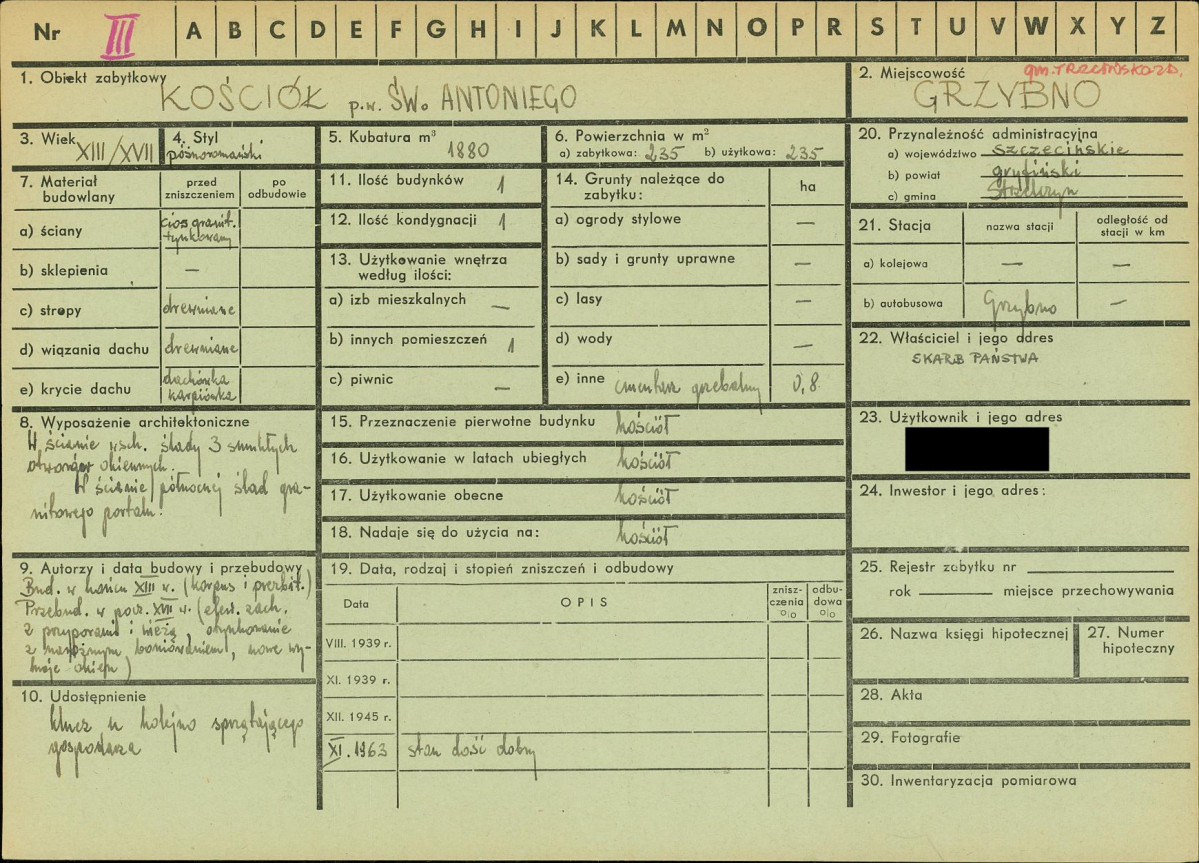 Nr III A B C D E F G H I J K L M N O P R S T U V W X Y Z
1. Obiekt zabytkowy
KOŚCIÓŁ p.w. ŚW. ANTONIEGO
2. Miejscowość gm. TRZCIŃSKO ZD.
GRZYBNO
3. Wiek XIII/XVII
4. Styl
późnoromański
5. Kubatura m³
1880
6. Powierzchnia w m²
a) zabytkowa: 235 b) użytkowa: 235
20. Przynależność administracyjna
a) województwo szczecińskie
b) powiat gryfiński
c) gmina Strzelczyn
7. Materiał budowlany
przed zniszczeniem
po odbudowie
a) ściany
cios granit.
tynkowany
b) sklepienia —
c) stropy drewniane
d) wiązania dachu drewniane
e) krycie dachu
dachówka
karpiówka
11. Ilość budynków 1
12. Ilość kondygnacji 1
13. Użytkowanie wnętrza
według ilości:
a) izb mieszkalnych —
b) innych pomieszczeń 1
c) piwnic —
14. Grunty należące do
zabytku:
ha
a) ogrody stylowe —
b) sady i grunty uprawne —
c) lasy —
d) wody —
e) inne cmentarz grzebalny 0,8
21. Stacja
nazwa stacji
odległość od
stacji w km
a) kolejowa — —
b) autobusowa Grzybno —
22. Właściciel i jego adres
SKARB PAŃSTWA
8. Wyposażenie architektoniczne
W ścianie wsch. ślady 3 smukłych
otworów okiennych.
W ścianie północnej ślad gra-
nitowego portalu.
15. Przeznaczenie pierwotne budynku kościół
16. Użytkowanie w latach ubiegłych kościół
17. Użytkowanie obecne kościół
18. Nadaje się do użycia na: kościół
23. Użytkownik i jego adres
24. Inwestor i jego adres:
9. Autorzy i data budowy i przebudowy
Bud. w końcu XIII w. (korpus i prezbit.)
Przebud. w poł. XVII w. (elew. zach.
z przyporami i wieżą, otynkowanie
z narożnym boniowaniem, nowe wy-
kroje okien)
10. Udostępnienie
klucz u kolejno sprzątającego
gospodarza
19. Data, rodzaj i stopień zniszczeń i odbudowy
Data
OPIS
znisz-
czenia
%
odbu-
dowa
%
VIII. 1939 r.
XI. 1939 r.
XII. 1945 r.
XI. 1963 stan dość dobry
25. Rejestr zabytku nr
rok miejsce przechowywania
26. Nazwa księgi hipotecznej
27. Numer
hipoteczny
28. Akta
29. Fotografie
30. Inwentaryzacja pomiarowa